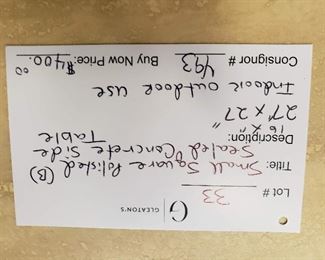 G
GLEATON'S
Lot # 33
Title: Small Square Polished (B)
Sealed Concrete Side
Table
Description:
16 x "
27" x 27"
Indoor outdoor use
Consignor # 493 Buy Now Price: $400.00